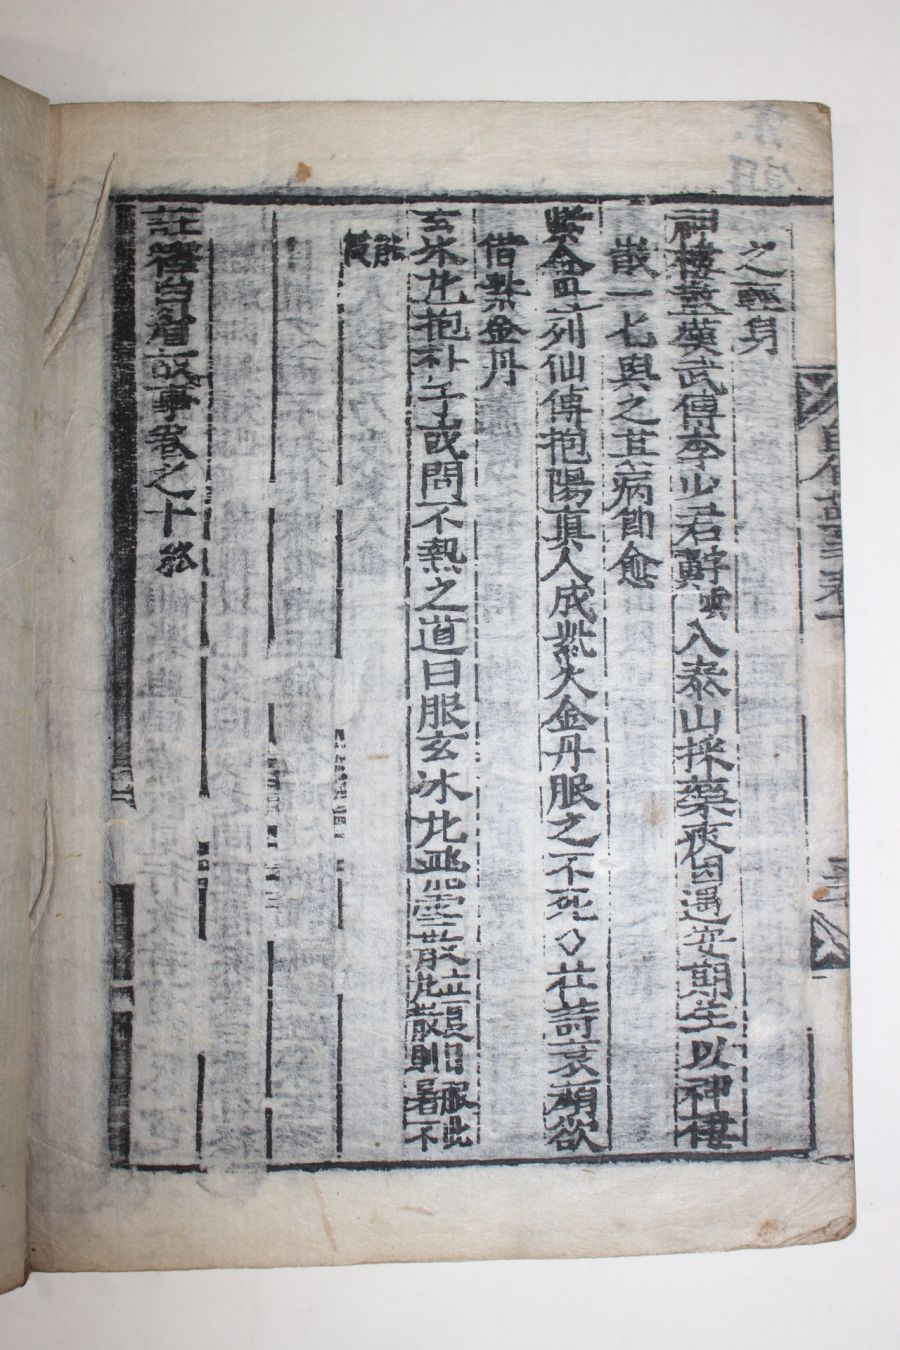 之輕身
神樓散漢武傳李少君辭上入泰山採藥夜因遇安期生以神樓
散一匕與之其病即愈
紫金丹列仙傳抱陽眞人成紫火金丹服之不死 杜詩哀願欲
借紫金丹
玄冰丸抱朴子或問不熱之道曰服玄冰丸飛雪散 服此則暑不
能侵
註釋白眉故事卷之十終
白眉故事卷十